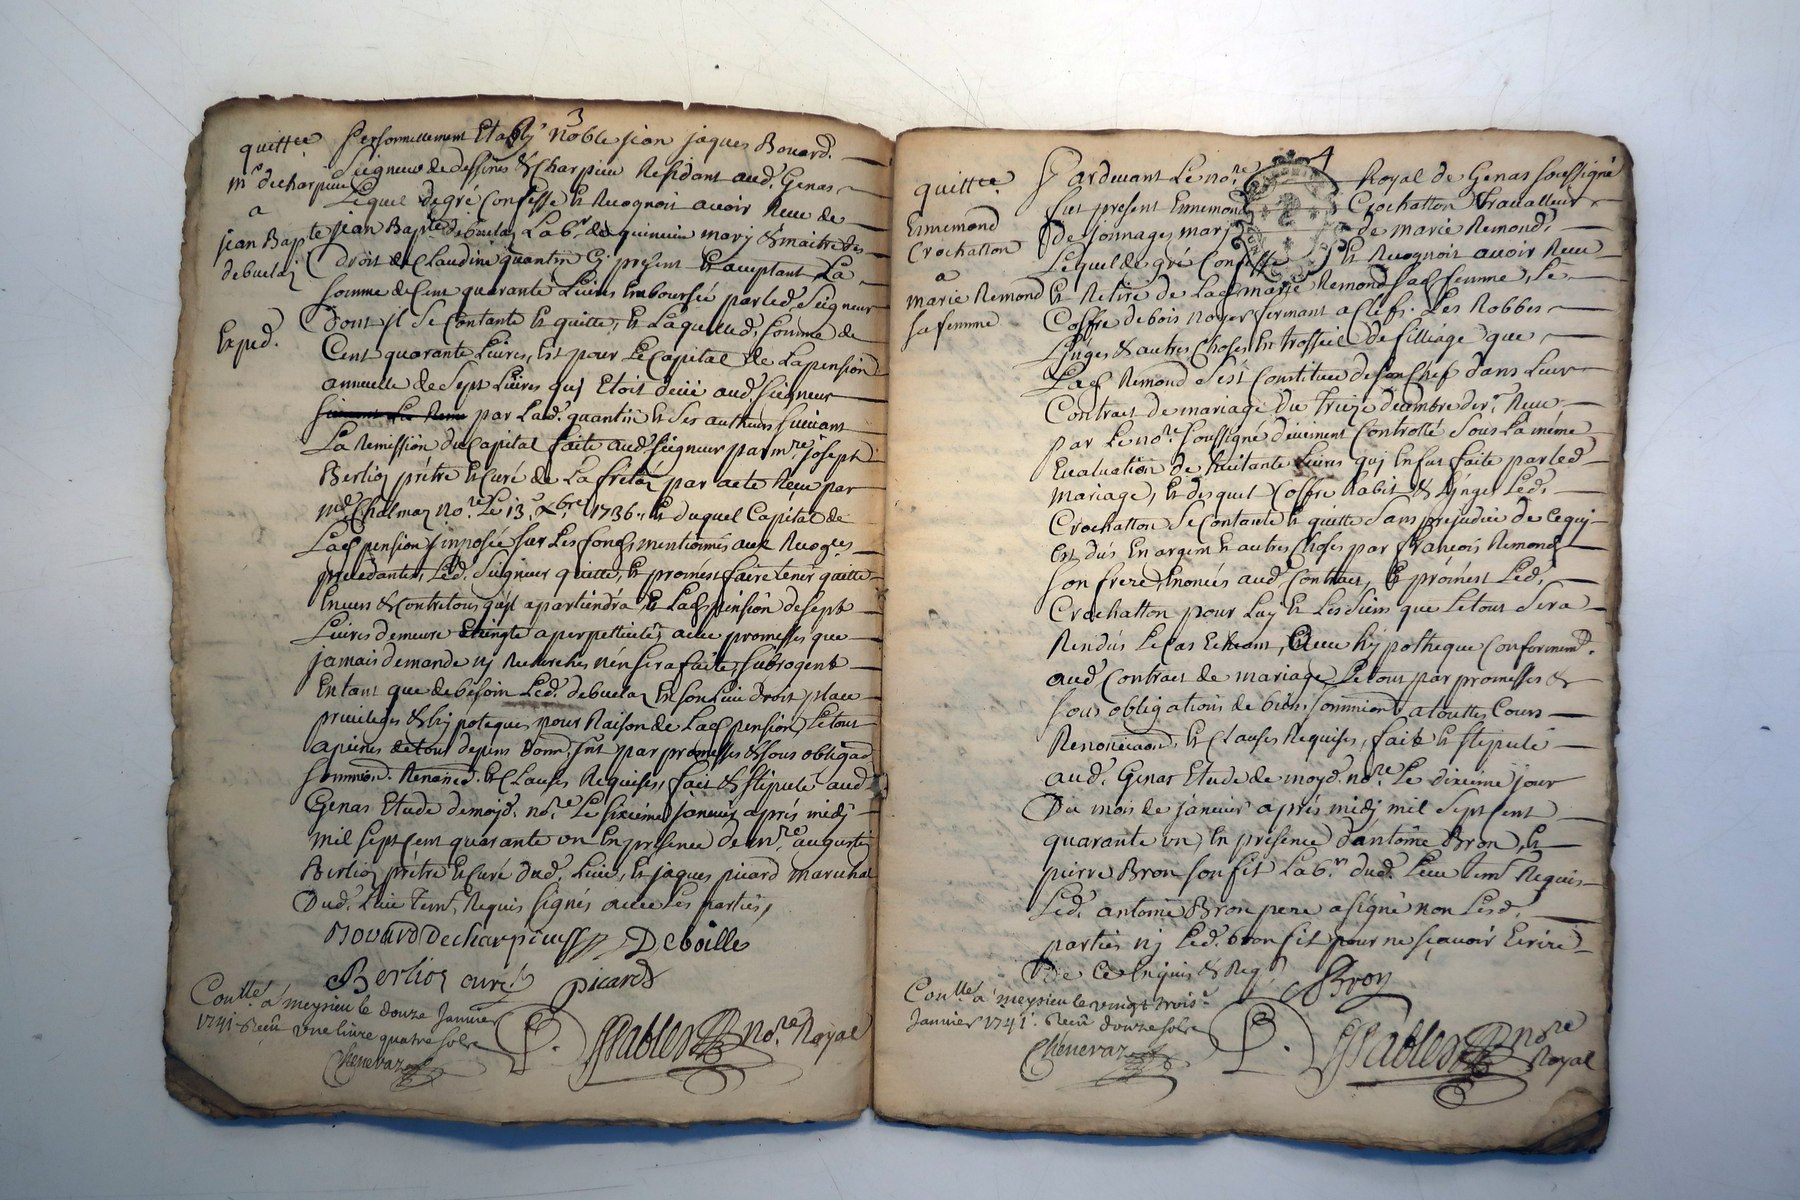 3
quitt.ce
m.r decharpieu
a
jean Bapte
debuclaz
Exped.
Personnellement Etably noble jean jaques Bouard.
Seigneur de dessines & Charpieu Residant aud. Genas
Lequel de gré Confesse & Recognoit avoir Reçu de
jean Bapte debuclaz Lab.r de quincieu mary & maitre des
droit de Claudine quantin Cy present & acceptant La
somme de Cent quarante Livres Emboursée par led. Seigneur
Dont jl Se Contante & quitte, & Laquelle d. somme de
Cent quarante Livres, Est pour Le Capital de La pension
annuelle de Sept Livres quj Etoit deüe aud. Seigneur
par Lad. quantin & Ses autheurs suivant
La Remission du Capital faite aud. Seigneur par m.re joseph
Berlioz prêtre & Curé de La frétaz par acte Reçu par
m.e Chalmaz no.re Le 13. xbre 1736., & duquel Capital de
Lad. pension jmposée sur Les fonds mentionnés aux Recog.es
precedantes, Led. Seigneur quitte, & promest faire tenir quitte
Envers & Contre tous qu'jl apartiendra & Lad. pension de sept
Livres demeure Eteingte a perpettuité, avec promesses que
jamais demande nj Recherches n'en sera faite, subrogent
En tant que de besoin Led. debuclaz En son Lieu droit place
privileges & hypoteques pour Raison de Lad. pension, Le tout
a peines de tous depens dom. jnt par promesses & sous obligaõn
sommiõn. Renonciõ. & Clauses Requises, fait & stipulé aud.
Genas Etude de moyd. no.re Le sixieme janvier après midj
mil sept cent quarante un En presence de m.re augustin
Berlioz prêtre & Curé dud. Lieu, & jaques picard marechal
Dud. Lieu Temt. Requis signés avec Les parties,
Bouard Decharpieu Deboille
Berlioz curé picard
Con.llé a meysieu le douze Janvier
1741. Recû une livre quatre sols
Chenevaz
P. Pables no.re Royal
4
quitt.ce
Ennemond
Crochatton
a
marie Remond
sa femme
Pardevant Le no.re Royal de Genas soussigné
fut present Ennemond Crochatton Travailleur
de jonnages mary de marie Remond,
Lequel de gré Confesse & Recognoit avoir Reçu
& Retiré de Lad. marie Remond sad. femme, Le
Coffre de bois noyer fermant a Clefs. Les Robbes
Linges & autres Choses En trosseil de filliage que
Lad. Remond s'est Constituée de son Chef dans Leur
Contract de mariage du Treize decembre der.r Reçu
par Le no.re soussigné düement Controllé sous La méme
Evaluation de huitante Livres quj En fut faite par led.
mariage, & desquel Coffre habit & Linges Led.
Crochatton se Contante & quitte sans prejudice de Ce quj
Est dûs En argent & autres Choses par françois Remond
son frere, Enoncés aud. Contract, & promest Led.
Crochatton pour Luy & Les siens que Le tout sera
Rendûs Le Cas Echeant, avec hypotheque Conformemt.
aud. Contract de mariage, Le tout par promesses &
sous obligations de biens sommiõn a touttes Cours
Renonciaõn & Clauses Requises, fait & stipulé
aud. Genas Etude de moyd. no.re Le dixieme jour
Du mois de janvier après midj mil sept cent
quarante un, En présence d'antoine Bron, &
pierre Bron son fils Lab.rs dud. Lieu temt. Requis
Led. antoine Bron pere a signé non Lesd.
parties nj Led. bron fils pour ne sçavoir Ecrire
De Ce Enquis & Req.
ABron
Con.llé a meysieu le vingt trois.e
Janvier 1741. Recû douze sols
Chenevaz
P. Pables no.re
Royal